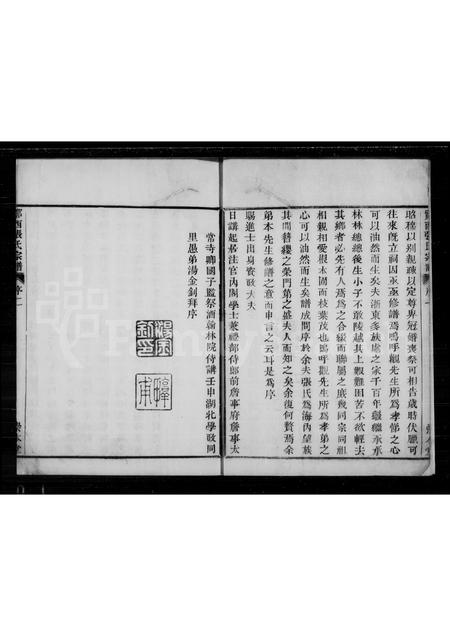 昭穆以別親疎以定尊卑冠婚喪祭可相告歲時伏臘可
往來旣立祠因亟亟修譜焉嗚呼觀先生所爲孝悌之心
可以油然而生矣夫浙東多族處之家千百年繼繼承承
林林總總後生小子不敢陵越其上艱難困苦不欲輕去
其鄉者必先有人焉爲之合綴而聯屬之庶幾同宗同祖
相親相愛根本固而枝葉茂也嗚呼觀先生所爲孝弟之
心可以油然而生矣譜成問序於余夫張氏爲海內望族
其間簪纓之榮門第之盛夫人而知之矣余復何贅焉余
弟本先生修譜之意而申言之云耳是爲序
賜進士出身資政大夫
日講起居注官內閣學士兼禮部侍郎前詹事府詹事太
常寺卿國子監祭酒翰林院侍講壬申湖北學政同
里愚弟湯金釗拜序
湯金
釗印
西張氏宗譜 序 二